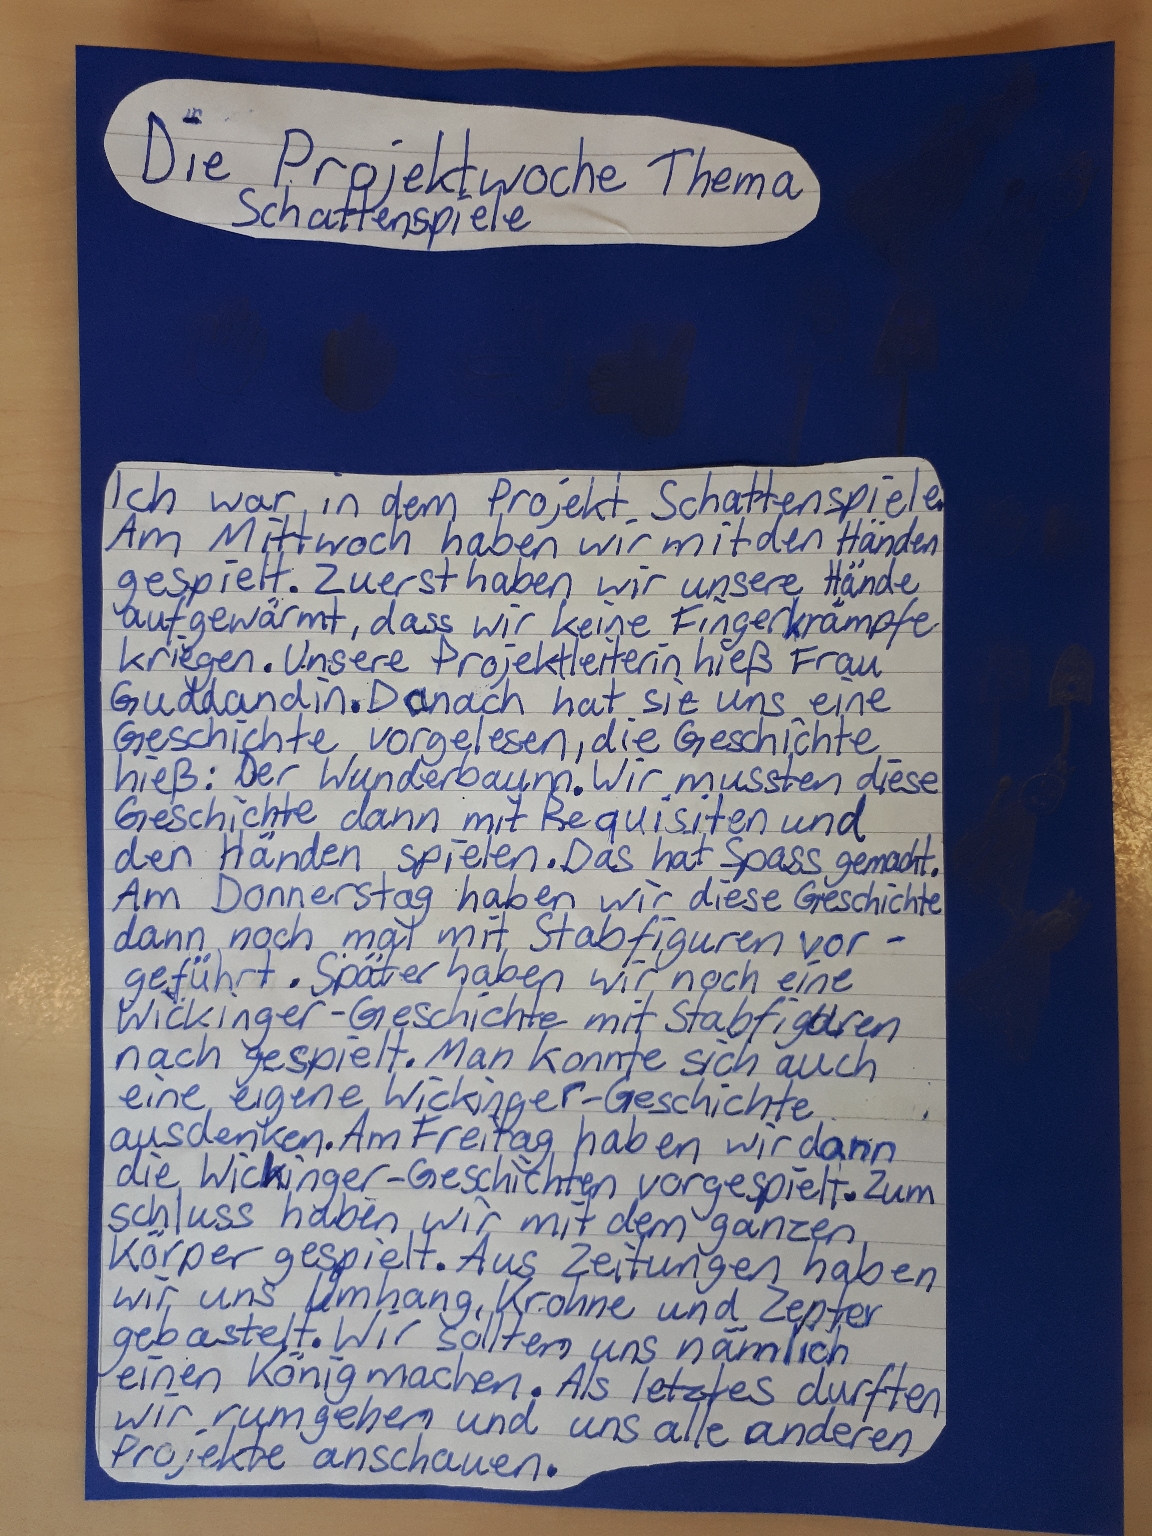 Die Projektwoche Thema
Schattenspiele
Ich war in dem Projekt Schattenspiele.
Am Mittwoch haben wir mit den Händen
gespielt. Zuerst haben wir unsere Hände
aufgewärmt, dass wir keine Fingerkrämpfe
kriegen. Unsere Projektleiterin hieß Frau
Guddandin. Danach hat sie uns eine
Geschichte vorgelesen, die Geschichte
hieß: Der Wunderbaum. Wir mussten diese
Geschichte dann mit Requisiten und
den Händen spielen. Das hat Spass gemacht.
Am Donnerstag haben wir diese Geschichte
dann noch mal mit Stabfiguren vor-
geführt. Später haben wir noch eine
Wickinger-Geschichte mit Stabfiguren
nach gespielt. Man konnte sich auch
eine eigene Wickinger-Geschichte
ausdenken. Am Freitag haben wir dann
die Wickinger-Geschichten vorgespielt. Zum
schluss haben wir mit dem ganzen
Körper gespielt. Aus Zeitungen haben
wir uns Umhang, Krohne und Zepter
gebastelt. Wir sollten uns nämlich
einen König machen. Als letztes durften
wir rumgehen und uns alle anderen
Projekte anschauen.